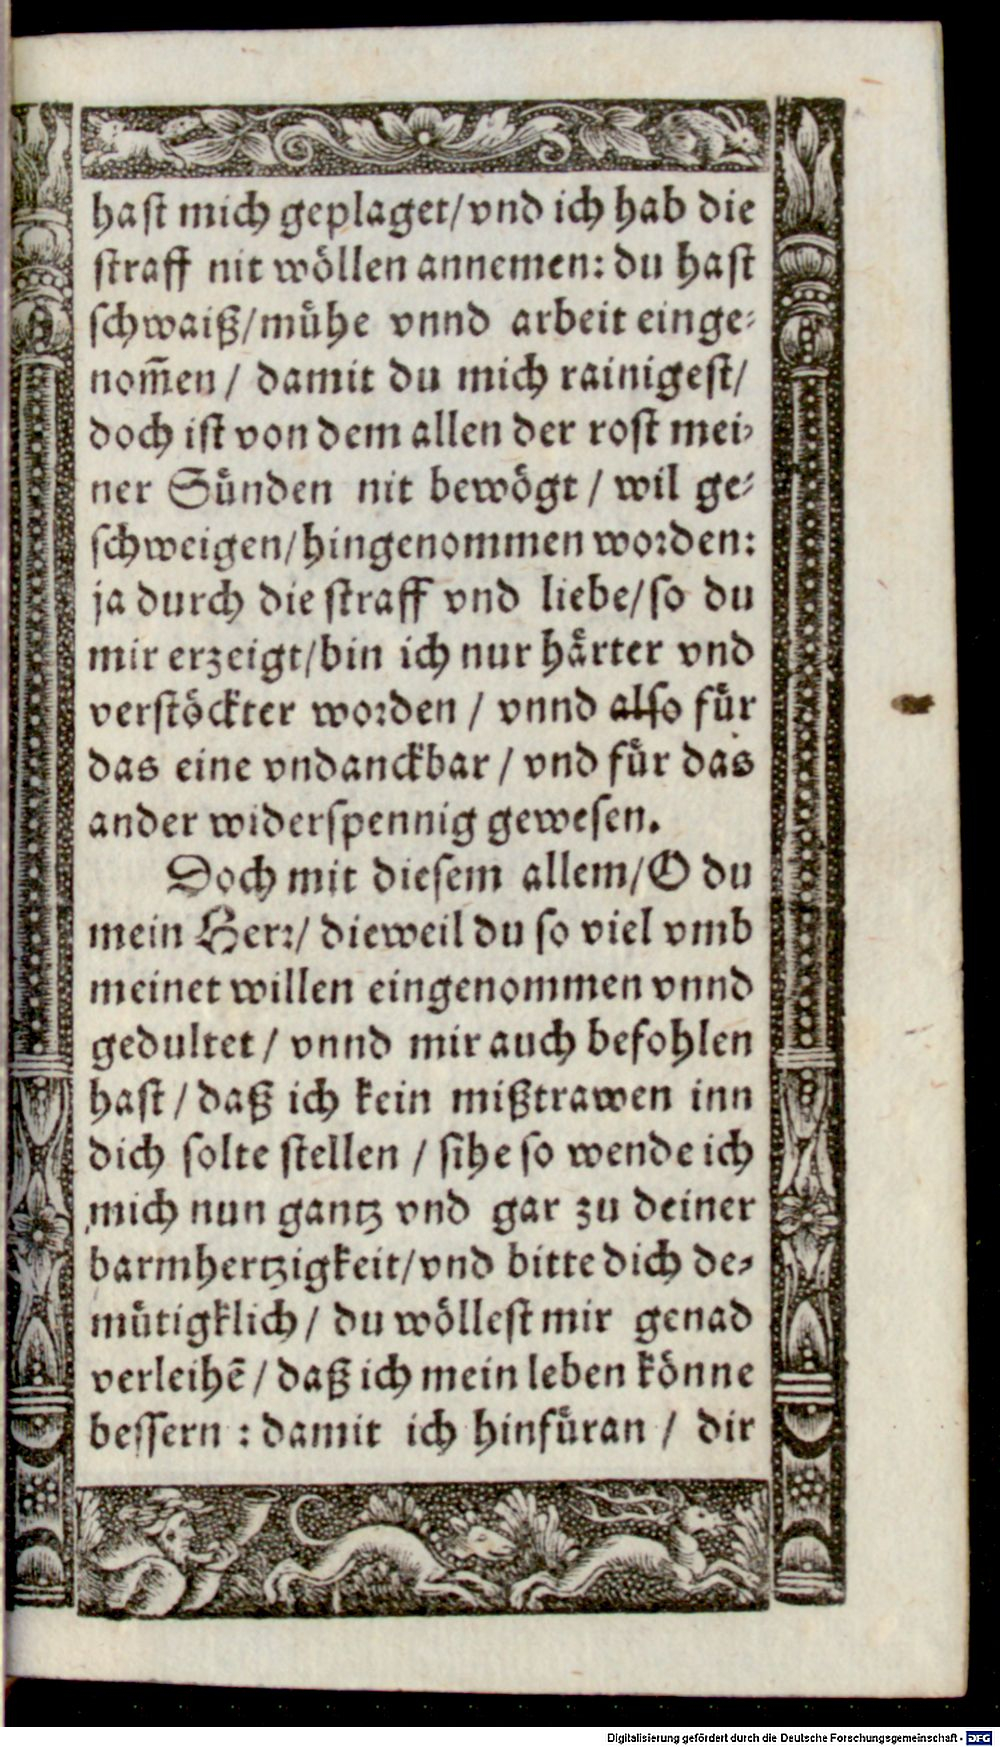 hast mich geplaget/vnd ich hab die
straff nit wöllen annemen: du hast
schwaiß/mühe vnnd arbeit einge⸗
nom̃en / damit du mich rainigest/
doch ist von dem allen der rost mei⸗
ner Sünden nit bewögt / wil ge⸗
schweigen/hingenommen worden:
ja durch die straff vnd liebe/so du
mir erzeigt/bin ich nur härter vnd
verstöckter worden / vnnd also für
das eine vndanckbar / vnd für das
ander widerspennig gewesen.
Doch mit diesem allem/O du
mein Herr/ dieweil du so viel vmb
meinet willen eingenommen vnnd
gedultet / vnnd mir auch befohlen
hast / daß ich kein mißtrawen inn
dich solte stellen / sihe so wende ich
mich nun gantz vnd gar zu deiner
barmhertzigkeit/vnd bitte dich de⸗
mütigklich / du wöllest mir genad
verleihẽ / daß ich mein leben könne
bessern : damit ich hinfüran / dir
Digitalisierung gefördert durch die Deutsche Forschungsgemeinschaft - DFG